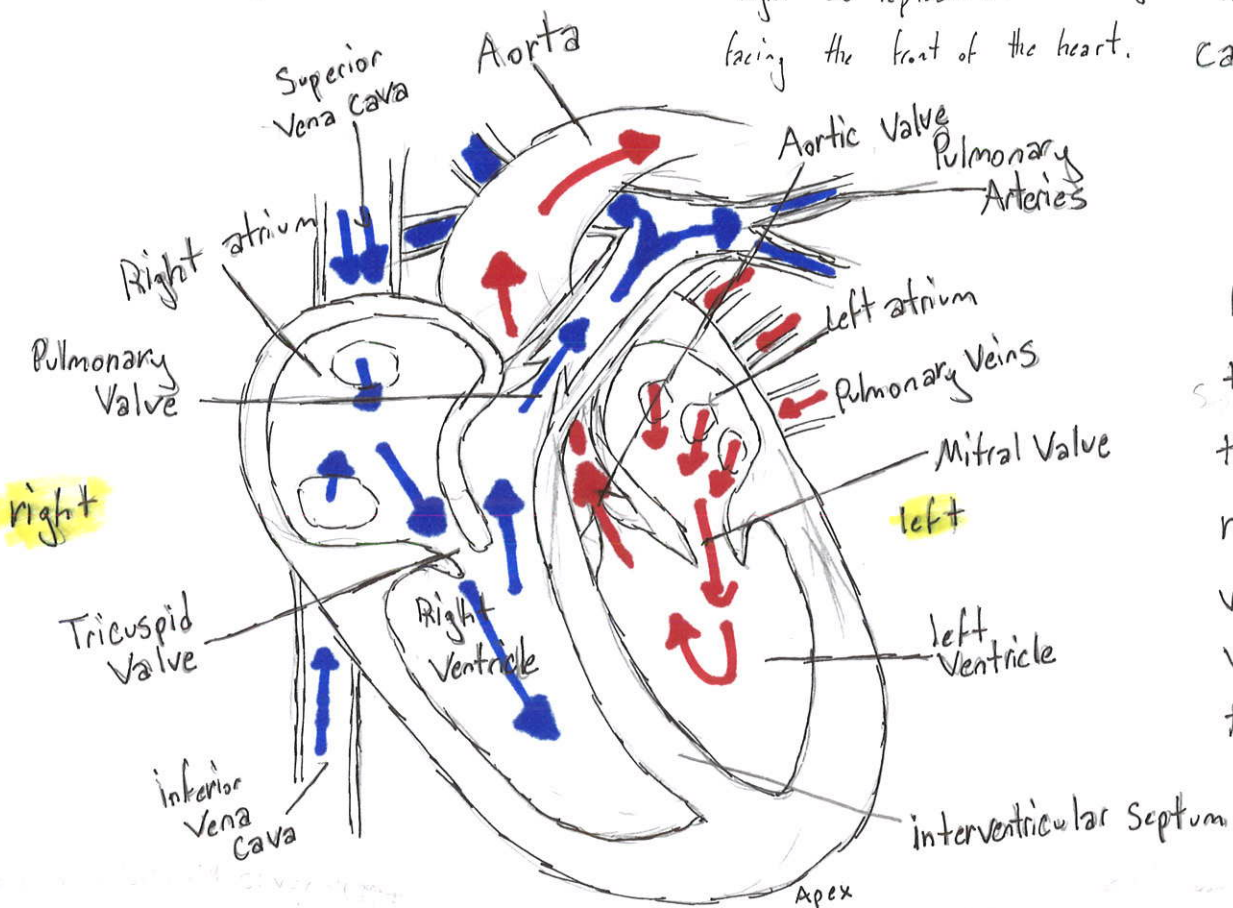 facing the front of the heart.
Ca
Aorta
Superior
Vena Cava
Aortic Valve
Pulmonary
Arteries
Right atrium
left atrium
Pulmonary
Valve
Pulmonary Veins
Mitral Valve
right
left
Tricuspid
Valve
Right
Ventricle
left
Ventricle
inferior
Vena
Cava
interventricular Septum
Apex